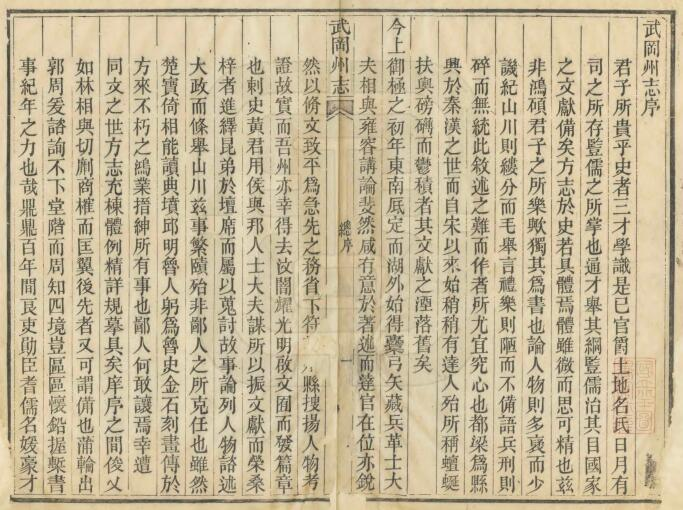 武岡州志序
君子所貴乎史者三才學識是已官爵土地名氏日月有
司之所存監儒之所掌也通才舉其綱監儒治其目國家
之文獻備矣方志於史若具體焉體雖微而思可精也茲
非鴻碩君子之所樂歟獨其為書也論人物則多襃而少
譏紀山川則縷分而毛舉言禮樂則陋而不備語兵刑則
碎而無統此敘述之難而作者所尤宜究心也都梁為縣
興於秦漢之世而自宋以來始稍稍有達人殆所稱蟺蜒
扶輿磅礡而鬱積者其文獻之湮落舊矣
今上御極之初年東南底定而湖外始得櫜弓矢藏兵革士大
夫相與雍容講論斐然咸有意於著述而達官在位亦銳
武岡州志
總序
一
然以脩文致平為急先之務省下符 縣搜揚人物考
證故實而吾州亦幸得去汶闇耀光明啟文囿而發篇章
也刺史黃君用侯與邦人士大夫謀所以振文獻而榮桑
梓者進繹昆弟於壇席而屬以蒐討故事論列人物諮述
大政而條舉山川茲事繁賾殆非鄙人之所克任也雖然
楚寶倚相能讀典墳邱明魯人躬為魯史金石刻畫傳於
方來不朽之鴻業搢紳所有事也鄙人何敢讓焉幸遭
同文之世方志充棟體例精詳規摹具矣庠序之間俊乂
如林相與切劘商榷而匡翼後先者又可謂備也蒲輪出
郭周爰諮詢不下堂階而周知四境豈區區懷鉛握槧書
事紀年之力也哉鼎鼎百年間良吏勛臣耆儒名媛豪才